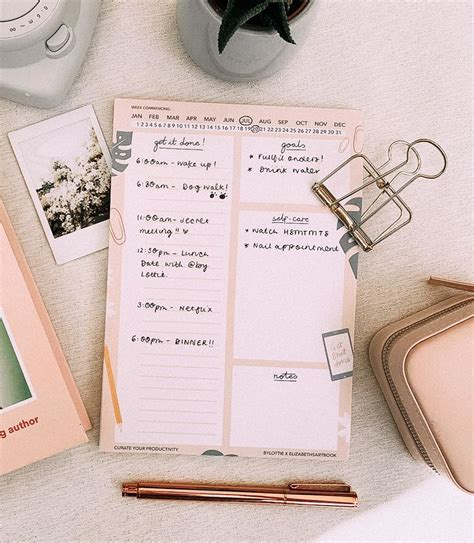 WEEK COMMENCING:
JAN FEB MAR APR MAY JUN JUL AUG SEP OCT NOV DEC
1 2 3 4 5 6 7 8 9 10 11 12 13 14 15 16 17 18 19 20 21 22 23 24 25 26 27 28 29 30 31
get it done!
6:00am - wake up!
6:30am - Dog walk!
11:00am - secret
meeting!!
12:30pm - Lunch
Date with @by
Lottie.
3:00pm - Netflix
6:00pm - DINNER!!
goals
* Fulfil orders!
* Drink water
self-care
* Watch HSMTMTS
* Nail appointment
GET
SHIT
DONE
notes
CURATE YOUR PRODUCTIVITY
BYLOTTIE X ELIZABETHSARTBOOK
g author